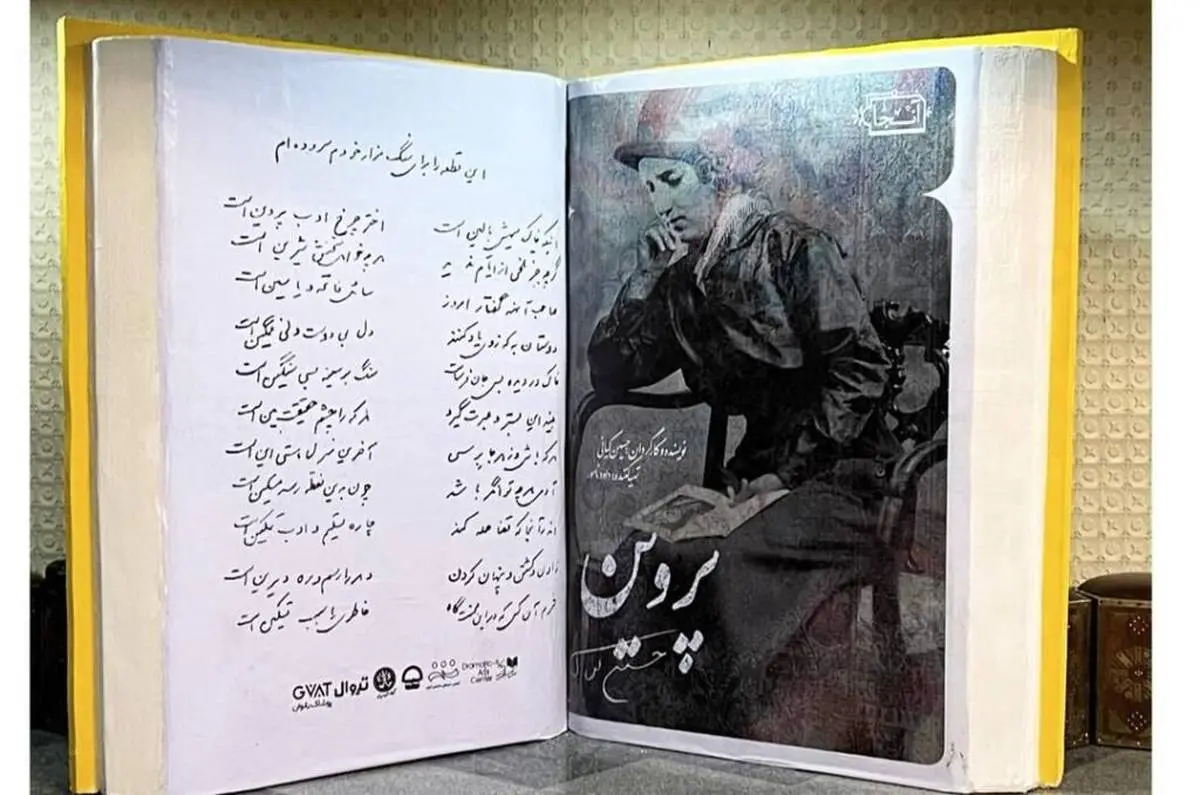 این قطعه را برای سنگ مزار خودم سروده ام
اینکه خاک سیهش بالین است اختر چرخ ادب پروین است
گرچه جز تلخی از ایام ندید هر چه خواهی سخنش شیرین است
صاحب آنهمه گفتار امروز سائل فاتحه و یاسین است
دوستان به که ز وی یاد کنند دل بی دوست دلی غمگین است
خاک در دیده بسی جان فرساست سنگ بر سینه بسی سنگین است
بیند این بستر و عبرت گیرد هر که را چشم حقیقت بین است
هر که باشی و ز هر جا برسی آخرین منزل هستی این است
آدمی هر چه توانگر باشد چون بدین نقطه رسد مسکین است
اندر آنجا که قضا حمله کند چاره تسلیم و ادب تمکین است
زادن و کشتن و پنهان کردن دهر را رسم و ره دیرین است
خرم آن کس که در این محنت گاه خاطری را سبب تسکین است
Dramatic Arts Center
تروال GVAT
آنجا
نویسنده و کارگردان: حسین کیانی
تهیه کننده: داود
پروین